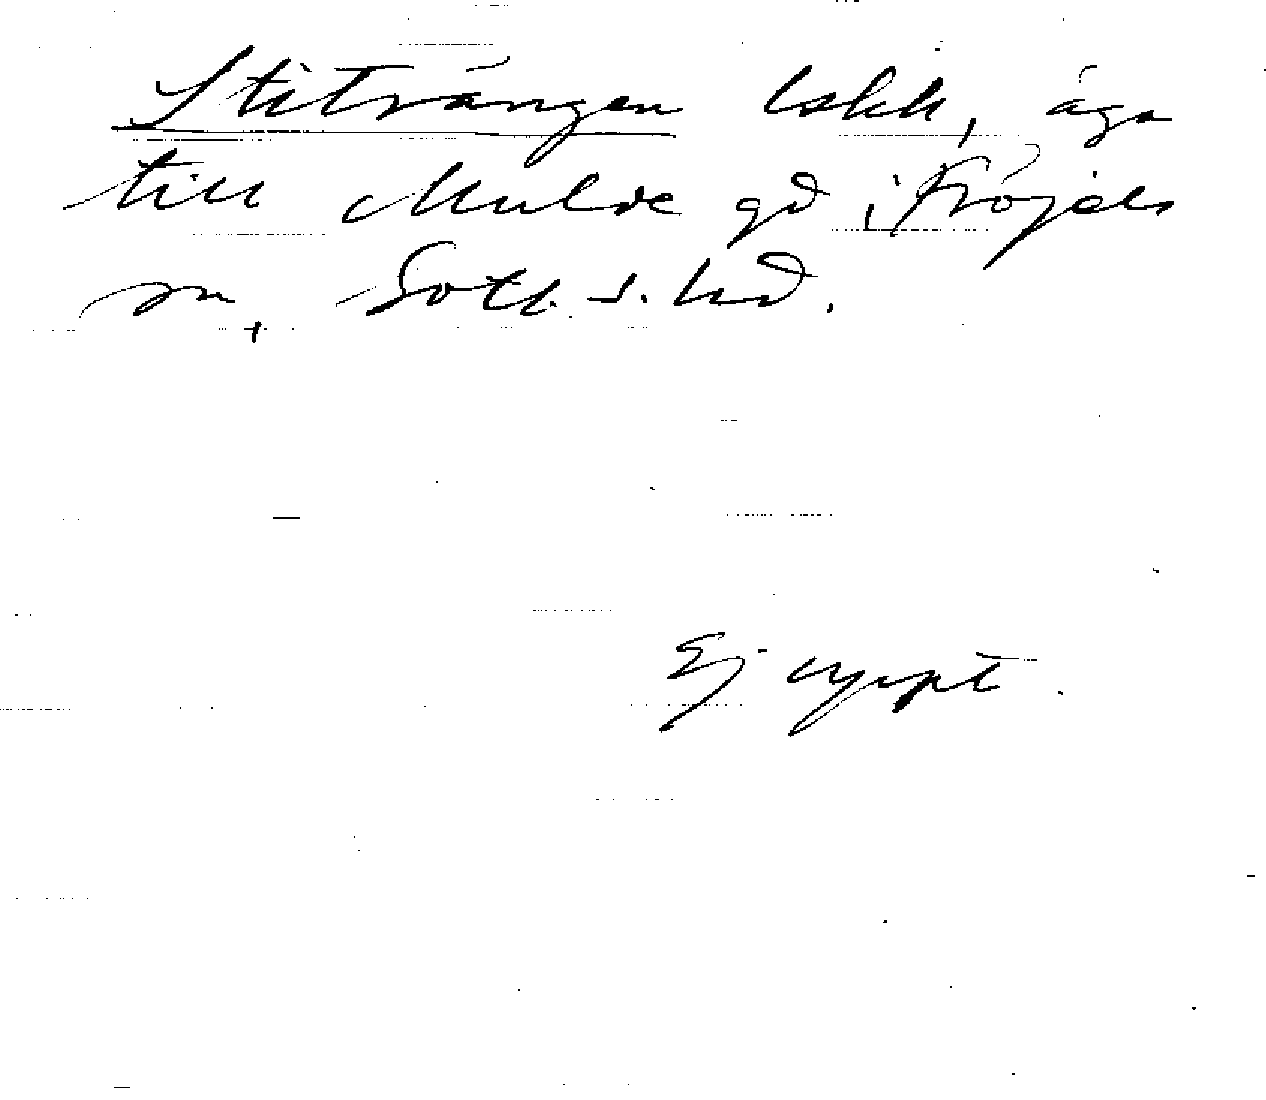 Stiträngen lskh, äga
till Mulde gd i Fröjels
sn, Gotl. s. hd.
Ej uppt.